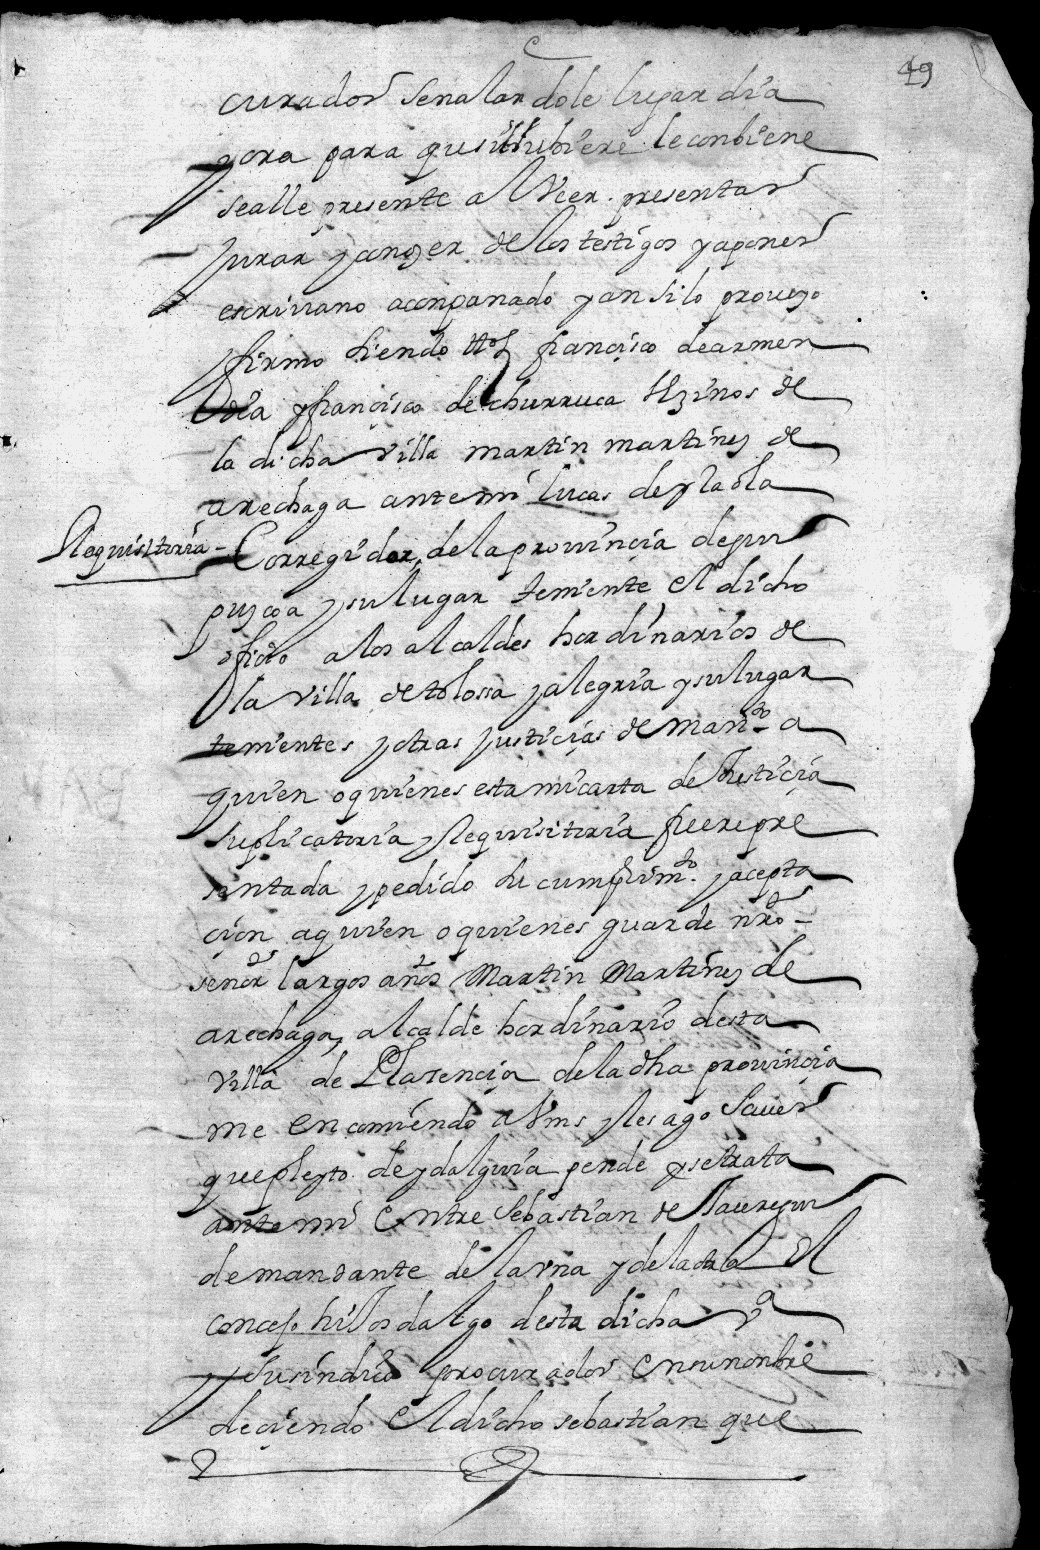 49
curador señalandole lugar dia
y ora para que si biere le conbiene
se alle presente al Veer. presentar
jurar y conoзer de los testigos y aponer
escrivano aconpanado y ansi lo proveyo
y firmo siendo tt̃os francisco de armen
dia y francisco de churruca Vezinos de
la dicha villa martin martines de
arechaga ante mi lucas de ylaola
Requisitoria - Corregidor de la provinçia de gui
puzcoa y su lugar teniente el dicho
ofiçio a los alcaldes hordinarios de
la villa de tolossa y alegria y su lugar
tenientes y otras justiçias de Manᵈᵒ a
quien o quienes esta mi carta de Justiçia
suplicatoria y Requisitoria fuere pre
sentada y pedido su cumplimᵗᵒ. y acepta
çion a quien o quienes guarde nr̃o -
señor largos años Martin Martines de
arechaga, alcalde hordinario desta
villa de Plasençia de la dha provinçia
me encomiendo a Vms y les ago Saver
que pleyto de ydalguia pende y se trata
ante mi Entre Sebastian de Jauregui
demandante de la vna y de la otra El
conceJo hiJos dalgo desta dicha vᵃ
y su sindico procurador en su nonbre
deçiendo El dicho sebastian que